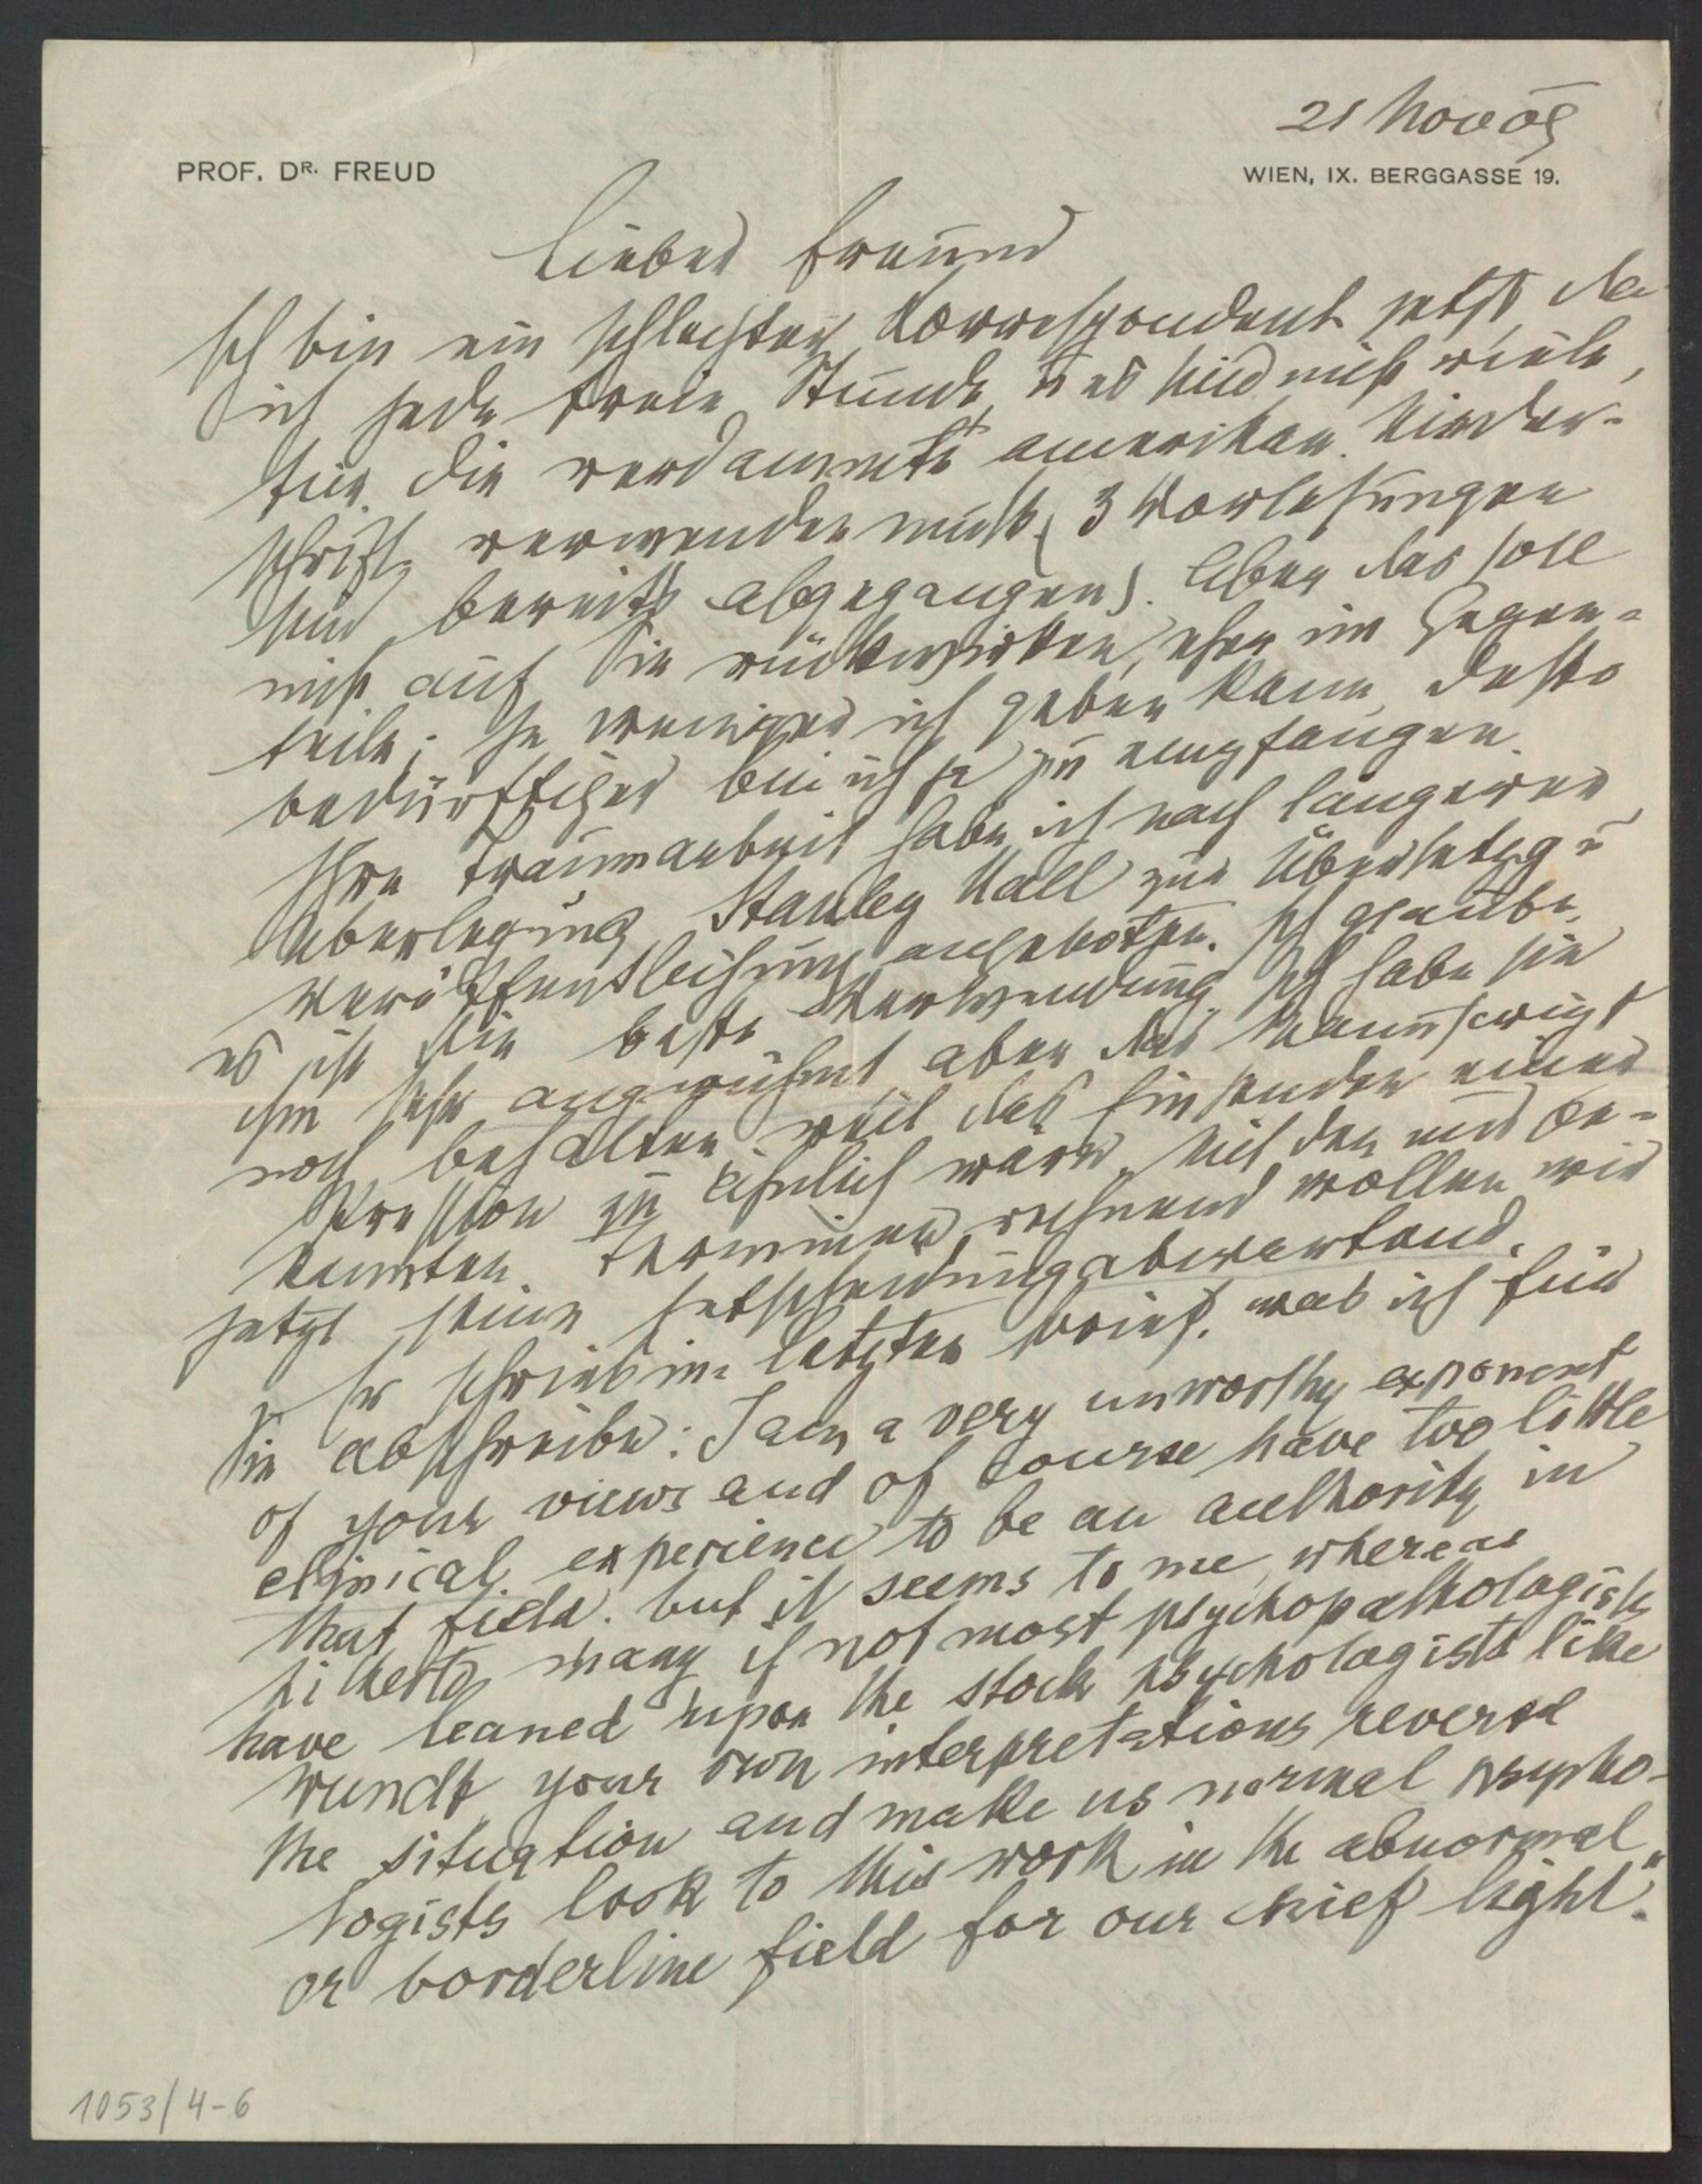 21 Nov 09
PROF. DR. FREUD
WIEN, IX. BERGGASSE 19.
Lieber Freund
Ich bin ein schlechter Korrespondent jetzt, da
ich jede freie Stunde, u es sind nicht viele,
für die verdammte amerikan. Nieder-
schrift verwenden muß (3 Vorlesungen
sind bereits abgegangen). Aber das soll
nicht auf Sie rückwirken, eher im Gegen-
teile; je weniger ich geben kann, desto
bedürftiger bin ich ja zu empfangen.
Ihre Traumarbeit habe ich nach längerer
Überlegung Stanley Hall zur Übersetzg u
Veröffentlichung angeboten. Ich glaube,
es ist die beste Verwendung. Ich habe sie
ihm sehr angerühmt, aber das
noch behalten, weil das Einsenden einer
Pression zu ähnlich wäre. Mit den uns be-
kannten Terminen rechnend wollen wir
jetzt seine Entscheidung abwarten.
Er schrieb im letzten Brief, was ich für
Sie abschreibe: I am a very unworthy exponent
of your views and of course have too little
clinical experience to be an authority in
that field. but it seems to me, whereas
hitherto many if not most psychopathologists
have leaned upon the stock psychologists like
Wundt, your own interpretations reverse
the situation and make us normal psycho-
logists look to this work in the abnormal
or borderline field for our chief light."
1053/4-6